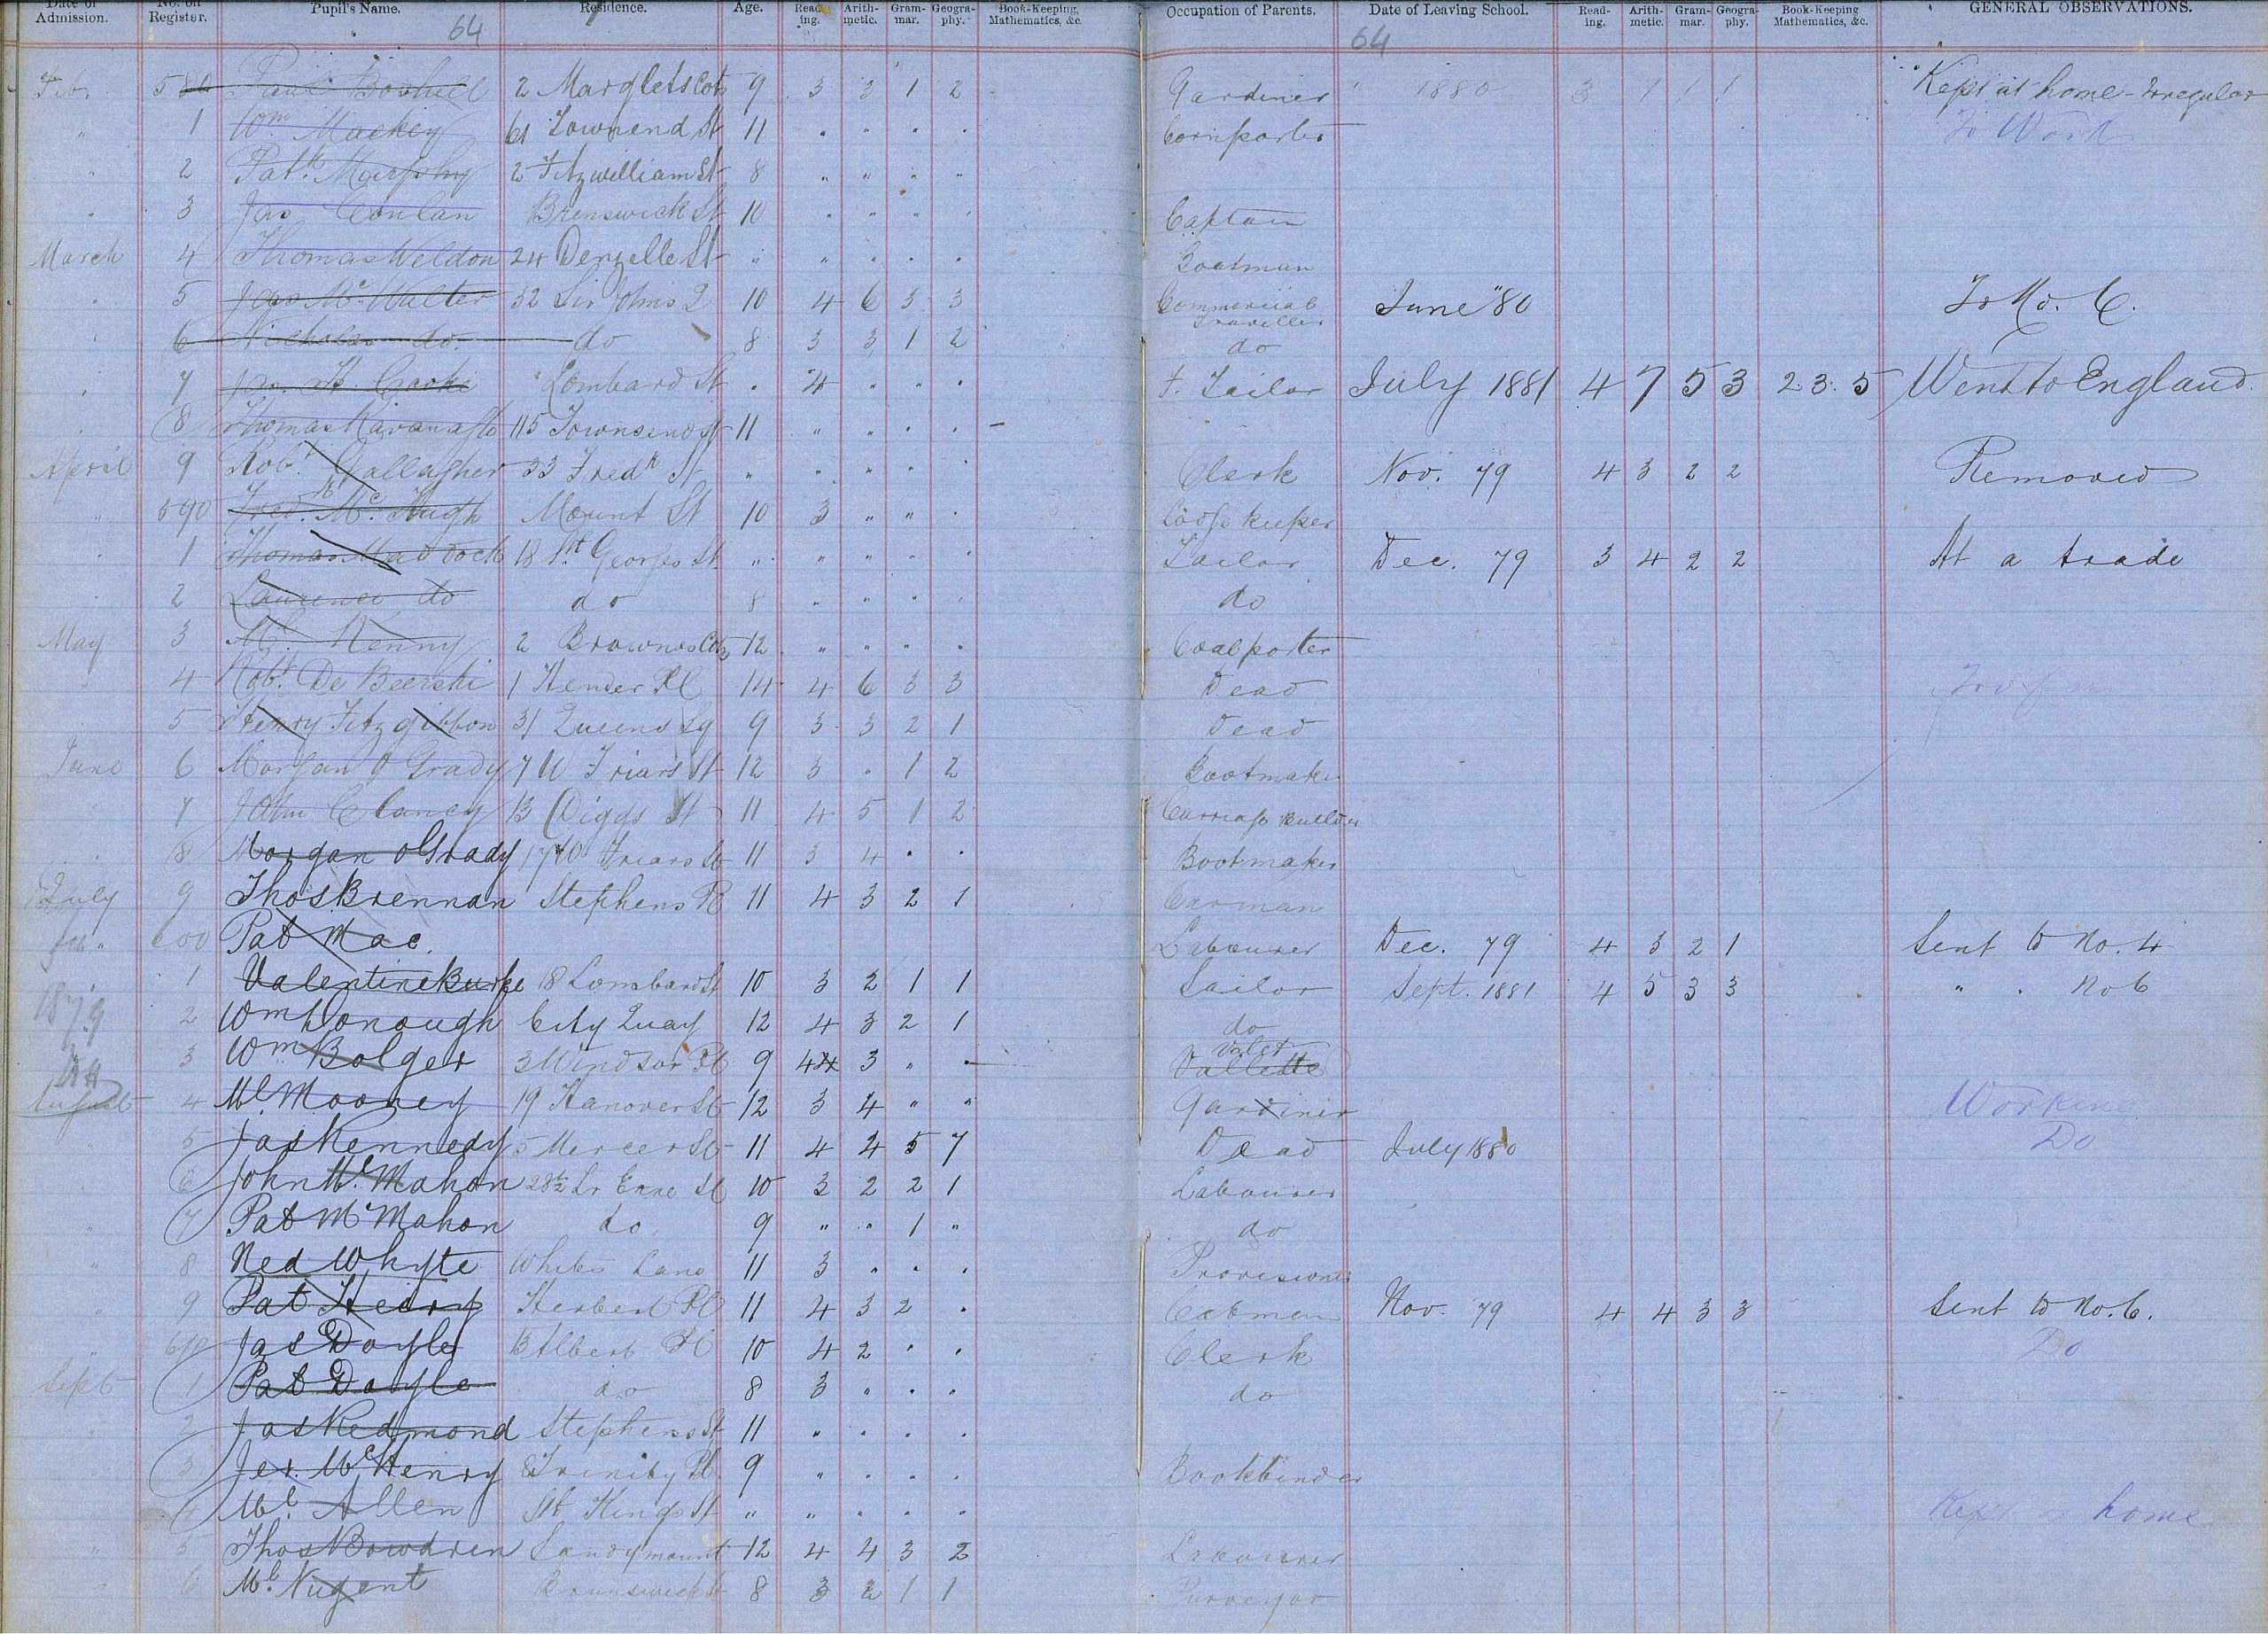 Date of Admission. No. on Register. Pupil's Name. Residence. Age. Read-ing. Arith-metic. Gram-mar. Geogra-phy. Book-Keeping, Mathematics, &c. Occupation of Parents. Date of Leaving School. Read-ing. Arith-metic. Gram-mar. Geogra-phy. Book-Keeping Mathematics, &c. GENERAL OBSERVATIONS.
64 64
Feb. 580 2 Marglets Cots 9 3 3 1 2 Gardiner 1880 3 1 1 1 Kept at home - Irregular
" 1 Wm Mackey 61 Townsend St 11 " " " " Cornporter To Work
" 2 Patk. Murphy 2 Fitzwilliam St 8 " " " "
" 3 Jas Conlan Brunswick St 10 " " " " Captain
March 4 Thomas Weldon 24 Denzelle St " " " " " Boatman
" 5 Jas Mc. Walter 32 Sir Johns Q 10 4 6 3 3 Commercial Traveller June "80 To Mo. C.
" 6 Nicholas do. do 8 3 3 1 2 do
" 7 Jas. H. Cooke Lombard St " 4 " " " F. Tailor July 1881 4 7 5 3 2 3. 5 Went to England.
" 8 Thomas Kavanagh 115 Townsend St 11 " " " "
April 9 Robt Gallagher 33 Fredk St " " " " " Clerk Nov. 79 4 3 2 2 Removed
" 590 Fred. Mc. Hugh Mount St 10 3 " " " Lodge keeper
" 1 Thomas Maddock 18 Nt. Georges St. " " " " " Tailor Dec. 79 3 4 2 2 At a trade
" 2 Laurence do do 8 " " " " do
May 3 Ml. Kenny 2 Brownes Cots 12 " " " " Coalporter
" 4 Robt. De Beerski 1 14 4 6 3 3 Dead
" 5 Henry Fitzgibbon 31 Queens Sq 9 3 3 2 1 Dead
June 6 Morgan O Grady 7 W Friars St 12 3 " 1 2 Bootmaker
" 7 John Clancy 13 Digges St 11 4 5 1 2 Carriage Builder
" 8 Morgan OGrady 17 W Friars St 11 3 4 " " Bootmaker
July 9 Thos Brennan Stephens Pl 11 4 3 2 1 Carman
600 Pat Mac. Labourer Dec. 79 4 3 2 1 Sent to No. 4
1 Valentine Burke 18 Lombard St 10 3 2 1 1 Sailor Sept. 1881 4 5 3 3 " " No 6
1879 2 Wm Donough City Quay 12 4 3 2 1 do
3 Wm Bolger 3 Windsor Pl 9 4 4 3 " " Valet Vallette
August 4 Ml. Mooney 19 Hanover St 12 3 4 " " Gardiner Working
" 5 Jas Kennedy 5 Mercer St 11 4 4 5 7 Dead July 1880 Do
" 6 John Mc. Mahon 28½ Lr Erne St 10 3 2 2 1 Labourer
" 7 Pat Mc Mahon do. 9 " " 1 " do
" 8 Ned Whyte Whites Lane 11 3 " " " Provisioner
" 9 Pat Henry Herbert Pl 11 4 3 2 " Cabman Nov. 79 4 4 3 3 Sent to No. 6.
" 610 Jas Doyle 13 Albert Pl 10 4 2 " " Clerk Do
Sept 1 Pat Doyle do 8 3 " " " do
" 2 Jas Redmond Stephens St 11 " " " "
3 Jer. Mc Henry 8 Trinity Pl. 9 " " " " Bookbinder
4 Ml. Allen Sth Kings St " " " " " Kept at home
" 5 Thos Bowdren Sandymount 12 4 4 3 2 Labourer
" 6 Ml. Nugent Brunswick St 8 3 2 1 1 Purveyor